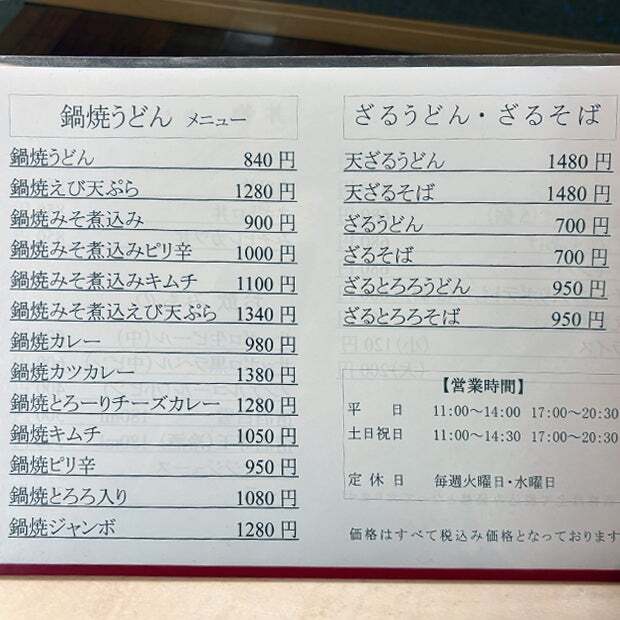 鍋焼うどん メニュー
鍋焼うどん 840 円
鍋焼えび天ぷら 1280 円
鍋焼みそ煮込み 900 円
鍋焼みそ煮込みピリ辛 1000 円
鍋焼みそ煮込みキムチ 1100 円
鍋焼みそ煮込えび天ぷら 1340 円
鍋焼カレー 980 円
鍋焼カツカレー 1380 円
鍋焼とろーりチーズカレー 1280 円
鍋焼キムチ 1050 円
鍋焼ピリ辛 950 円
鍋焼とろろ入り 1080 円
鍋焼ジャンボ 1280 円
ざるうどん・ざるそば
天ざるうどん 1480 円
天ざるそば 1480 円
ざるうどん 700 円
ざるそば 700 円
ざるとろろうどん 950 円
ざるとろろそば 950 円
【営業時間】
平 日 11:00～14:00 17:00～20:30
土日祝日 11:00～14:30 17:00～20:30
定 休 日 毎週火曜日・水曜日
価格はすべて税込み価格となっております